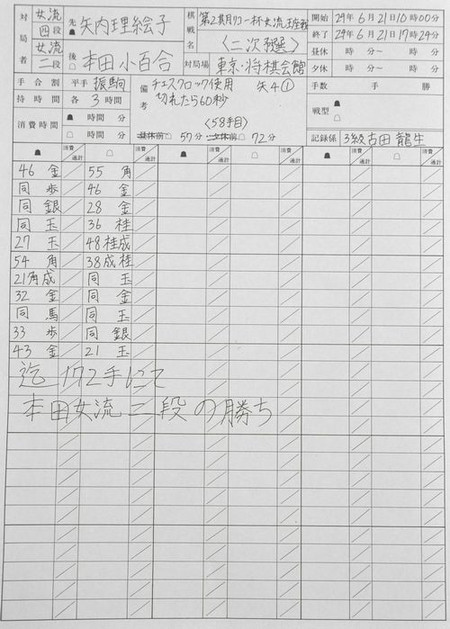 対局者 女流四段 先 矢内理絵子
女流二段 後 本田小百合
棋戦名 第7期リコー杯女流王座戦
〈二次予選〉
対局場 東京・将棋会館
開始 29年6月21日10時00分
終了 29年6月21日17時24分
昼休 時 分～ 時 分
夕休 時 分～ 時 分
手合割 平手 振駒
持時間 各3時間
消費時間 時間 分
時間 分
備考 チェスクロック使用 矢4①
切れたら60秒
〈58手目〉
昼休前 57分 夕休前 72分
手数 手 勝
戦型
記録係 3級 古田龍生
消費 通計 消費 通計 消費 通計 消費 通計 消費 通計 消費 通計
46 金 55 角
同 歩 46 金
同 銀 28 金
同 玉 36 桂
27 玉 48桂成
54 角 38成桂
21角成 同 玉
32 金 同 金
同 馬 同 玉
33 歩 同 銀
43 金 21 玉
迄 172手にて
本田女流二段の勝ち